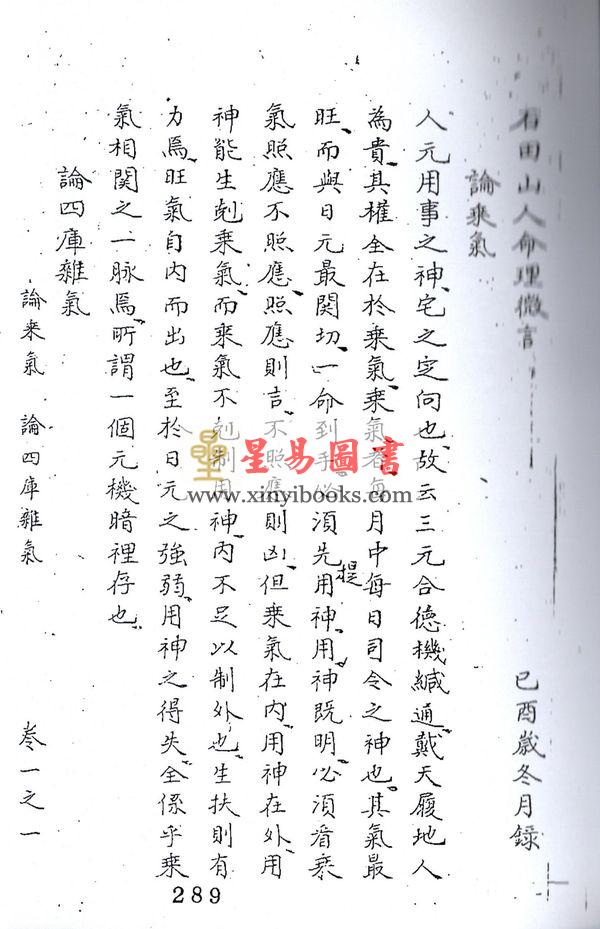 石田山人命理微言 己酉歲冬月錄
論乘氣
人元用事之神、宅之定向也、故云三元合德機緘通、戴天履地人
為貴、其權全在於乘氣、乘氣者每月中每日司令之神也、其氣最
旺、而與日元最関切、一命到手、必須先提用神、用神既明、必須看乘
氣照應不照應、照應則吉、不照應則凶、但乘氣在內、用神在外、用
神能生剋乘氣、而乘氣不剋制用神、內不足以制外也、生扶則有
力焉、旺氣自內而出也、至於日元之強弱、用神之得失、全係乎乘
氣相関之一脉焉、所謂一個元機暗裡存也
論四庫雜氣
論乘氣 論四庫雜氣 卷一之一
289
星易圖書
www.xinyibooks.com